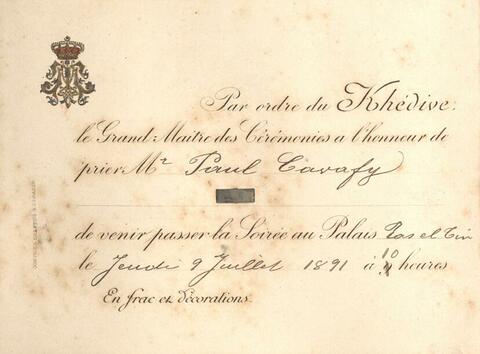 Par ordre du Khédive.
le Grand Maitre des Cérémonies a l'honneur de
prier Mr Paul Cavafy
de venir passer la Soirée au Palais Ras el Tin
le Jeudi 9 Juillet 1891 à 10 heures
En frac et décorations.